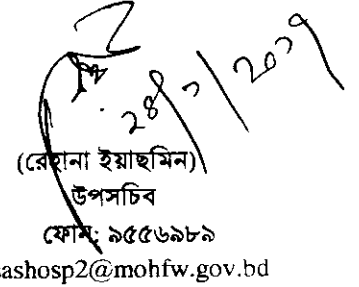 (রেহানা ইয়াছমিন)
উপসচিব
ফোন: ৯৫৫৬৯৮৯
sashosp2@mohfw.gov.bd